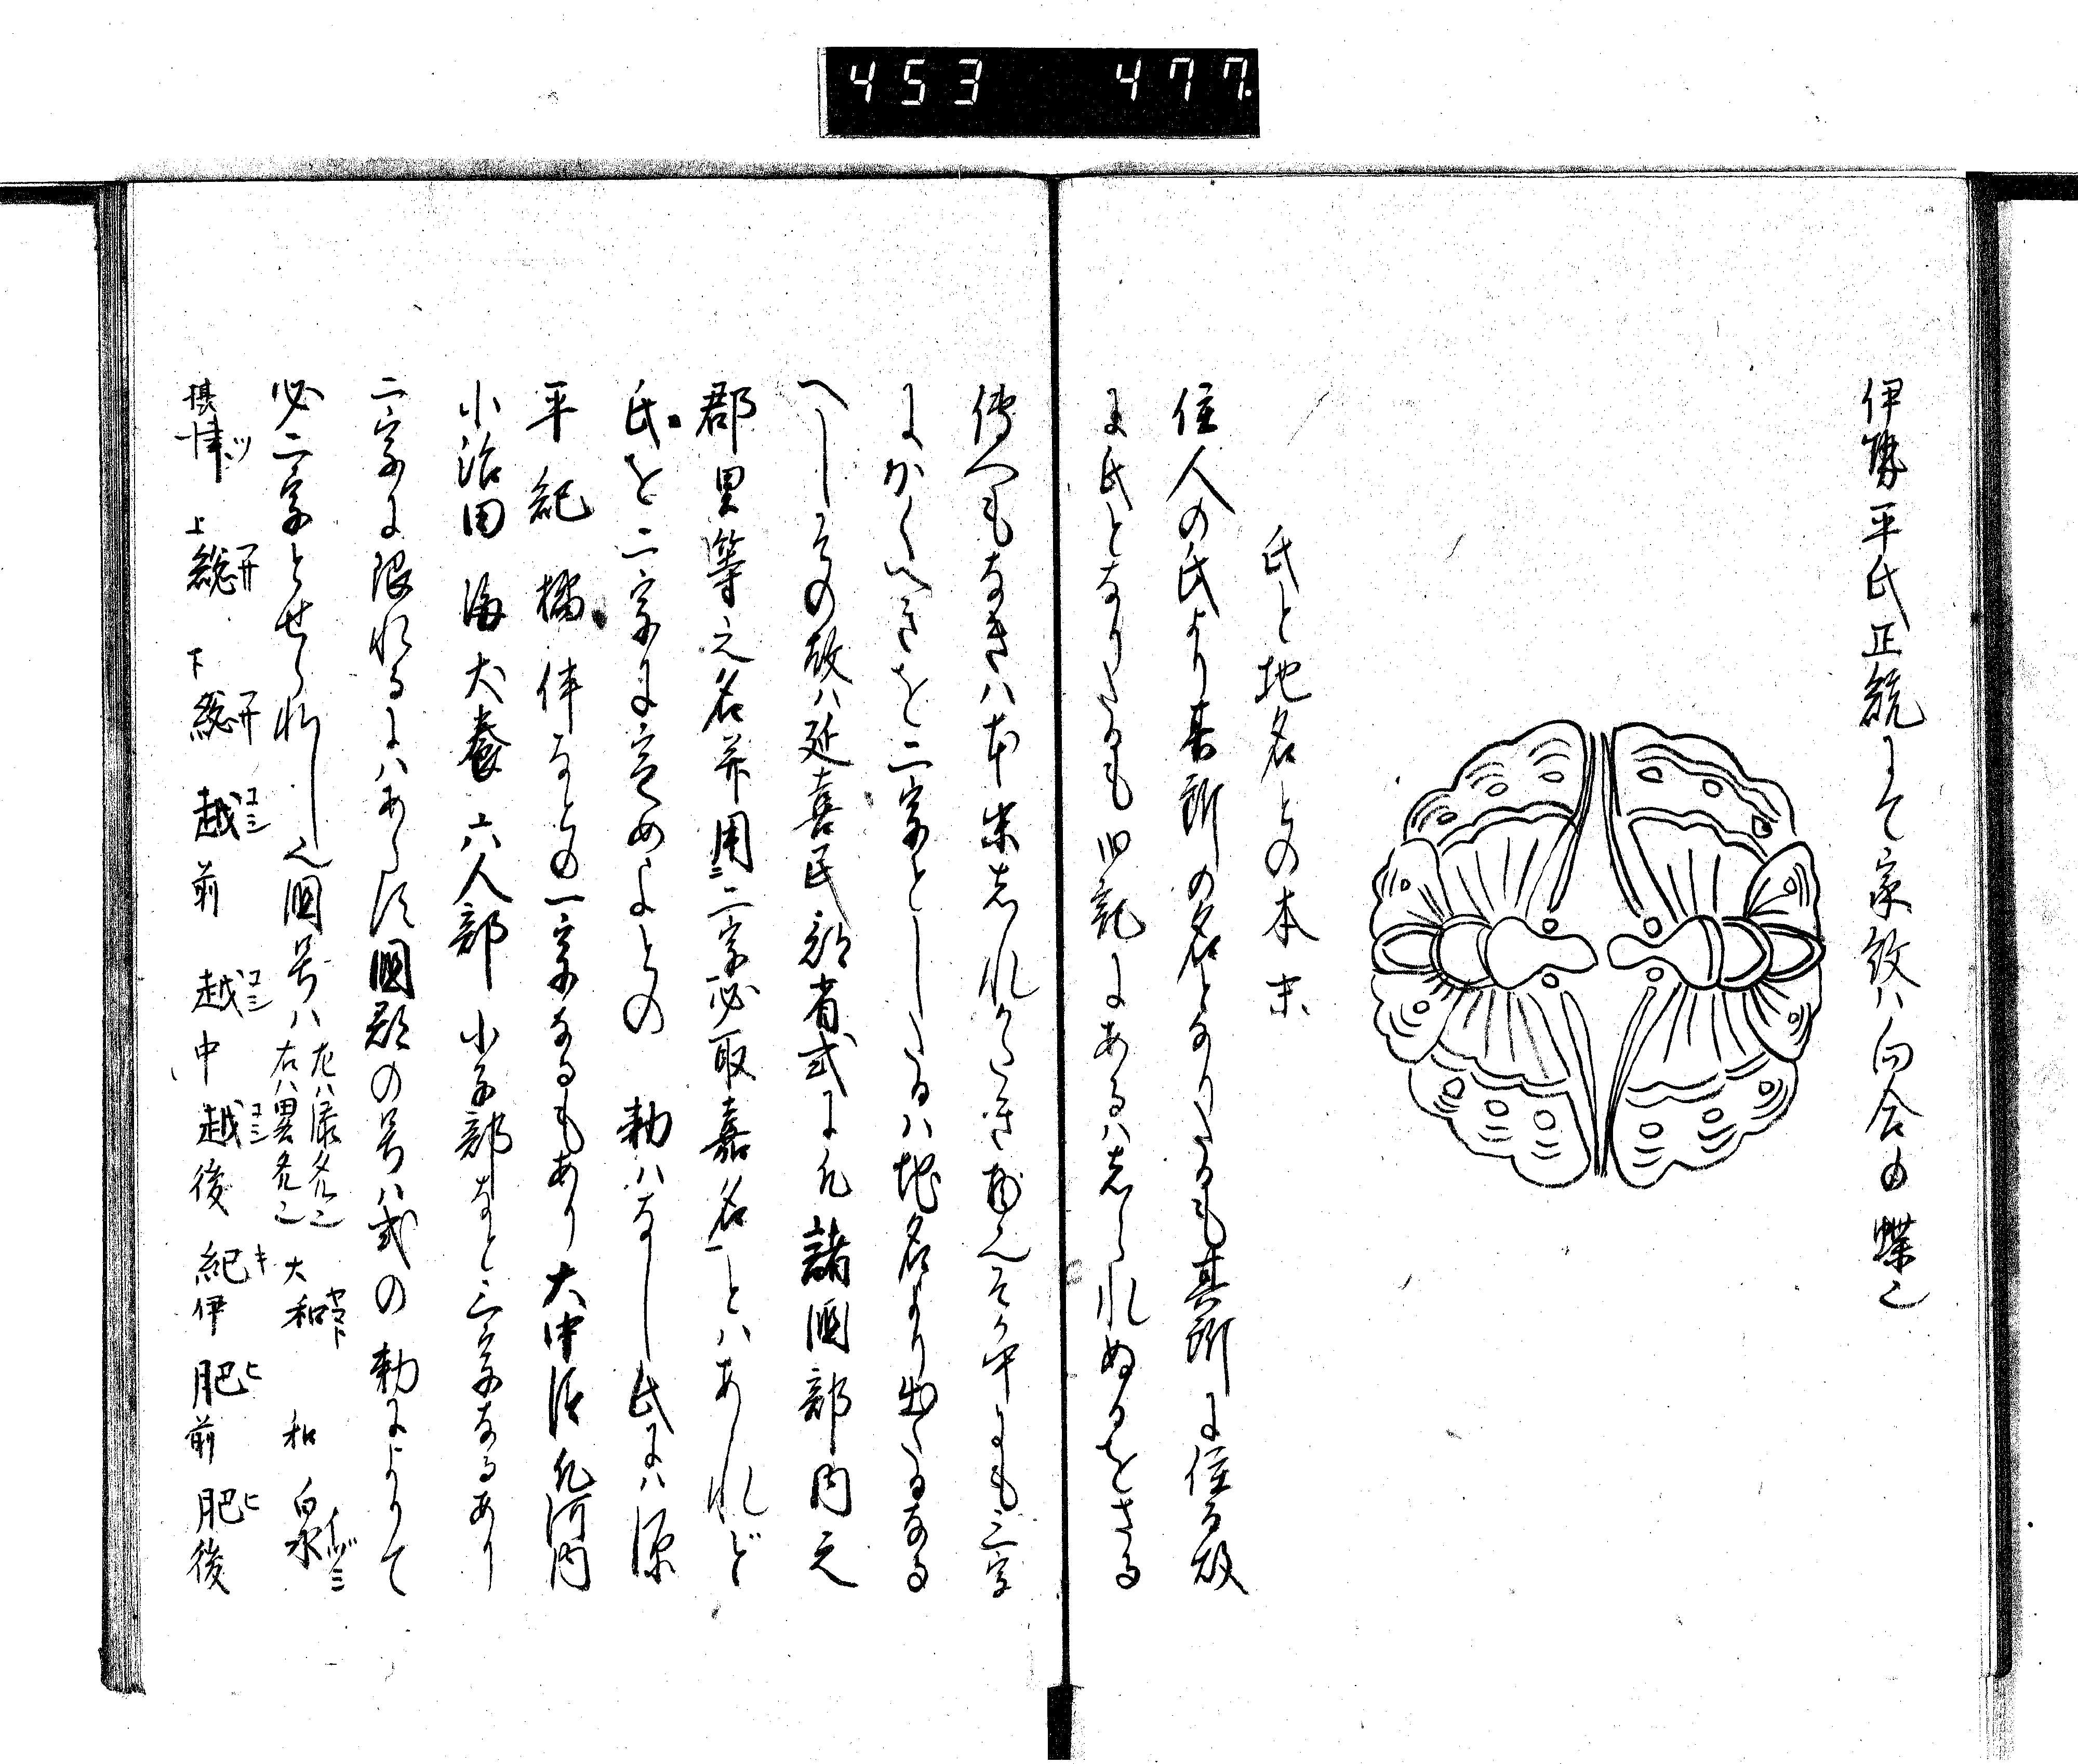 453 477.
伊勢平氏正統にて家紋ハ向合由蝶也
氏と地名との本末
住人の氏より其所の名となりたるも其所に住る故
に氏となりたるも旧記にあるハしられぬるをさる
傳へもなきハ本末しれかたき物也そか中にも三字
にかくへきを二字としたるハ地名より出たるなる
へしその故ハ延喜民部省式に凡諸國部内之
郡里等之名并用ニ二字必取嘉名一とハあれど
氏を二字に定めよとの 勅ハなし氏にハ源
平紀橘伴なとの一字なるもあり大中臣凡河内
小治田海犬養六人部小子部なと三字なるあり
二字に限れるにハあらす國郡の号ハ式の勅によりて
必二字とせられし也國号ハ左ハ最名也右ハ異名也 大和ヤマト 和泉イヅミ
摂津ツ 上総フサ 下総フサ 越コシ前 越コシ中 越コシ後 紀キ伊 肥ヒ前 肥ヒ後